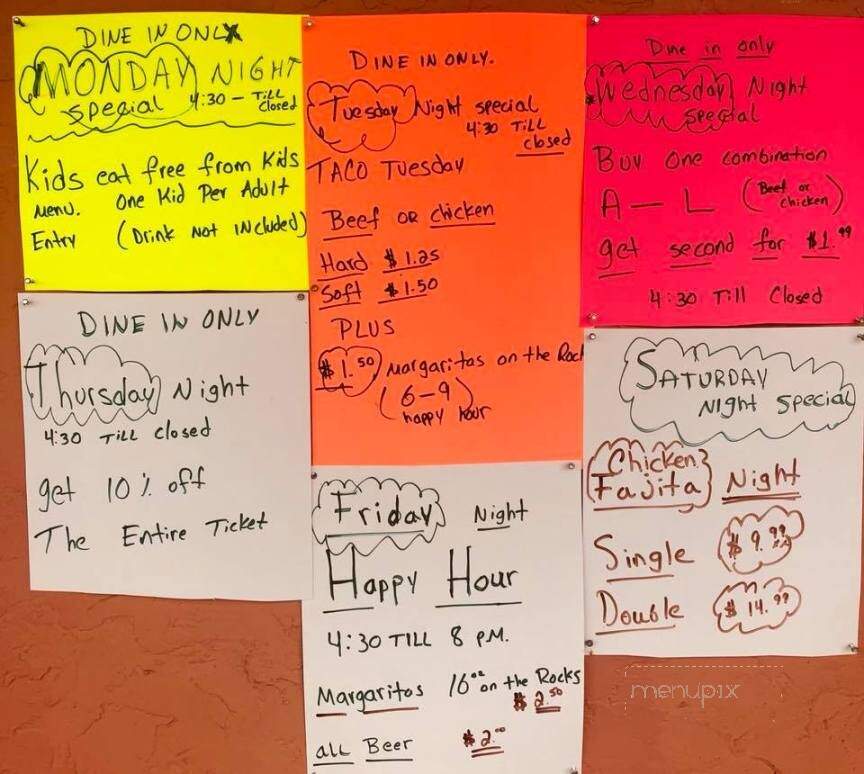 DINE IN ONLY
MONDAY NIGHT
special 4:30 - Till
closed
Kids eat free from Kids
Menu. One Kid Per Adult
Entry (Drink Not Included)
DINE IN ONLY.
Tuesday Night special
4:30 Till
closed
TACO TUESDAY
Beef OR chicken
Hard $1.25
Soft $1.50
PLUS
$1.50 Margaritas on the Rock
(6-9)
happy hour
Dine in only
Wednesday Night
special
Buy one combination
A — L (Beef or
chicken)
get second for $1.99
4:30 Till Closed
DINE IN ONLY
Thursday Night
4:30 Till closed
get 10% off
The Entire Ticket
Friday Night
Happy Hour
4:30 TILL 8 PM.
Margaritos 16oz on the Rocks
$2.50
all Beer $2.00
SATURDAY
Night Special
Chicken
Fajita Night
Single $9.99
Double $14.99
menupix